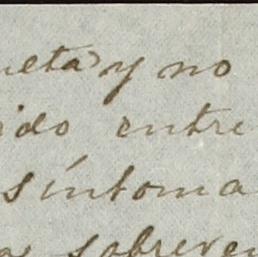 ueta y no
ido entre
síntoma
sobreve